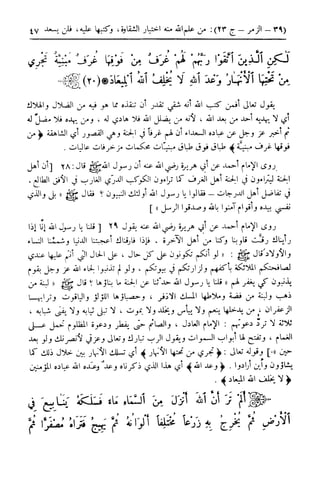 (٣٩ – الزمر – ج ٢٣): من علم الله منه اختيار الشقاوة، وكتبها عليه، فلن يسعد ٤٧
لَٰكِنِ ٱلَّذِينَ ٱتَّقَوْا۟ رَبَّهُمْ لَهُمْ غُرَفٌ مِّن فَوْقِهَا غُرَفٌ مَّبْنِيَّةٌ تَجْرِى
مِن تَحْتِهَا ٱلْأَنْهَٰرُ وَعْدَ ٱللَّهِ لَا يُخْلِفُ ٱللَّهُ ٱلْمِيعَادَ (٢٠)
يقول تعالى أفمن كتب الله أنه شقي تقدر أن تنقذه مما هو فيه من الضلال والهلاك
أي لا يهديه أحد من بعد الله، لأنه من يضلل الله فلا هادي له، ومن يهده فلا مضل له
ثم أخبر عز وجل عن عباده السعداء أن لهم غرفاً في الجنة وهي القصور أي الشاهقة ﴿ من
فوقها غرف مبنيّة ﴾ طباق فوق طباق مبنيّات محكمات مزخرفات عاليات .
روى الإمام أحمد عن أبي هريرة رضي الله عنه أن رسول الله ﷺ قال: ٢٨ [ أن أهل
الجنة ليتراءون في الجنة أهل الغرف كما تراءون الكوكب الدريّ الغارب في الأفق الطالع .
في تفاضل أهل الدرجات – فقالوا يا رسول الله أولئك النبيون ؟ فقال ﷺ « بلى والذي
نفسي بيده وأقوام آمنوا بالله وصدقوا الرسل » ]
روى الإمام أحمد عن أبي هريرة رضي الله عنه يقول ٢٩ [ قلنا يا رسول الله إنّا إذا
رأيناك رقّت قلوبنا وكنا من أهل الآخرة . فإذا فارقناك أعجبتنا الدنيا وشممنا النساء
والأولاد قال ﷺ: « لو أنكم تكونون على كل حال ، على الحال التي أنتم عليها عندي
لصافحتكم الملائكة بأكفهم ولزارتكم في بيوتكم ، ولو لم تذنبوا لجاء الله عز وجل بقوم
يذنبون كي يغفر لهم » قلنا يا رسول الله حدثنا عن الجنة ما بناؤها ؟ قال ﷺ « لبنة من
ذهب ولبنة من فضة وملاطها المسك الاذفر ، وحصباؤها اللؤلؤ والياقوت وترابها
الزعفران . من يدخلها ينعم ولا ييأس ويخلد ولا يموت ، لا تبلى ثيابه ولا يفنى شبابه ،
ثلاثة لا تردّ دعوتهم : الإمام العادل ، والصائم حتى يفطر ودعوة المظلوم تحمل على
الغمام ، وتفتح لها أبواب السموات ويقول الرب تبارك وتعالى وعزتي لأنصرنك ولو بعد
حين » ] وقوله تعالى : ﴿ تجري من تحتها الأنهار ﴾ أي تسلك الأنهار بين خلال ذلك كما
يشاؤون وأين أرادوا . ﴿ وعد الله ﴾ أي هذا الذي ذكرناه وعدٌ وعَده الله عباده المؤمنين
﴿ لا يخلف الله الميعاد . ﴾
أَلَمْ تَرَ أَنَّ ٱللَّهَ أَنزَلَ مِنَ ٱلسَّمَآءِ مَآءً فَسَلَكَهُۥ يَنَٰبِيعَ فِى
ٱلْأَرْضِ ثُمَّ يُخْرِجُ بِهِۦ زَرْعًا مُّخْتَلِفًا أَلْوَٰنُهُۥ ثُمَّ يَهِيجُ فَتَرَىٰهُ مُصْفَرًّا ثُمَّ